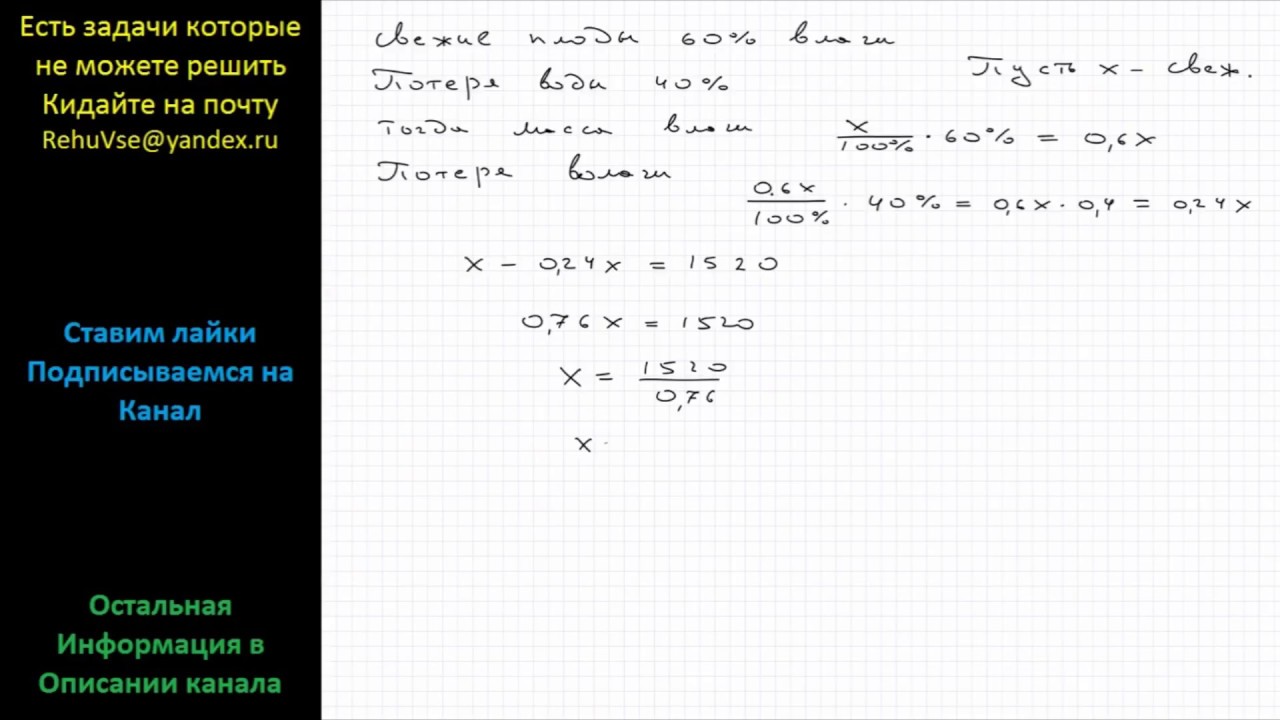 Есть задачи которые
не можете решить
Кидайте на почту
RehuVse@yandex.ru
Ставим лайки
Подписываемся на
Канал
Остальная
Информация в
Описании канала
свежие плоды 60% влаги
Пусть x - свеж.
Потеря воды 40%
тогда масса влаги
x/100% · 60% = 0,6x
Потеря волаги
0.6x/100% · 40% = 0,6x · 0,4 = 0,24x
x - 0,24x = 1520
0,76x = 1520
x = 1520/0,76
x